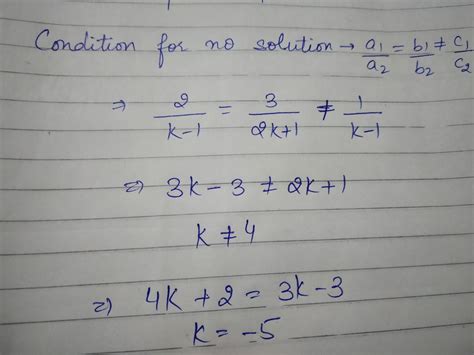 Condition for no solution → a₁/a₂ = b₁/b₂ ≠ c₁/c₂
⇒ 2/(k-1) = 3/(2k+1) ≠ 1/(k-1)
⇒ 3k-3 ≠ 2k+1
k ≠ 4
⇒ 4k+2 = 3k-3
k = -5